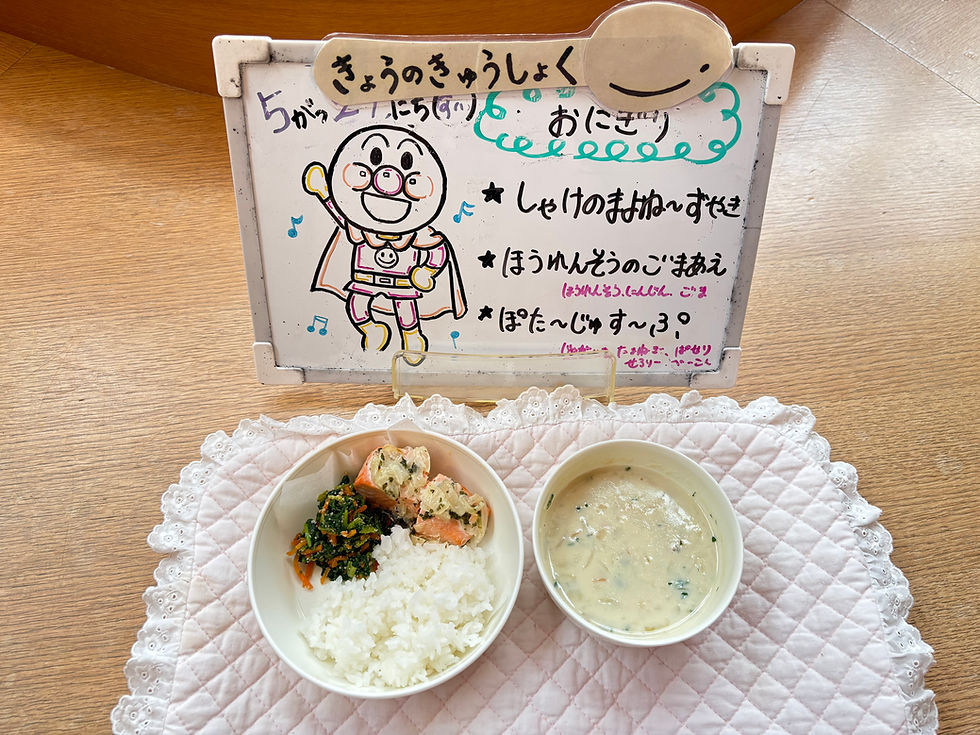 きょうのきゅうしょく
5がつ にち(すい)
おにぎり
★しゃけのまよね〜ずやき
★ほうれんそうのごまあえ
ほうれんそう、にんじん、ごま
★ぽた〜じゅす〜ぷ
たまねぎ、ぱせり
せろりー、べーこん